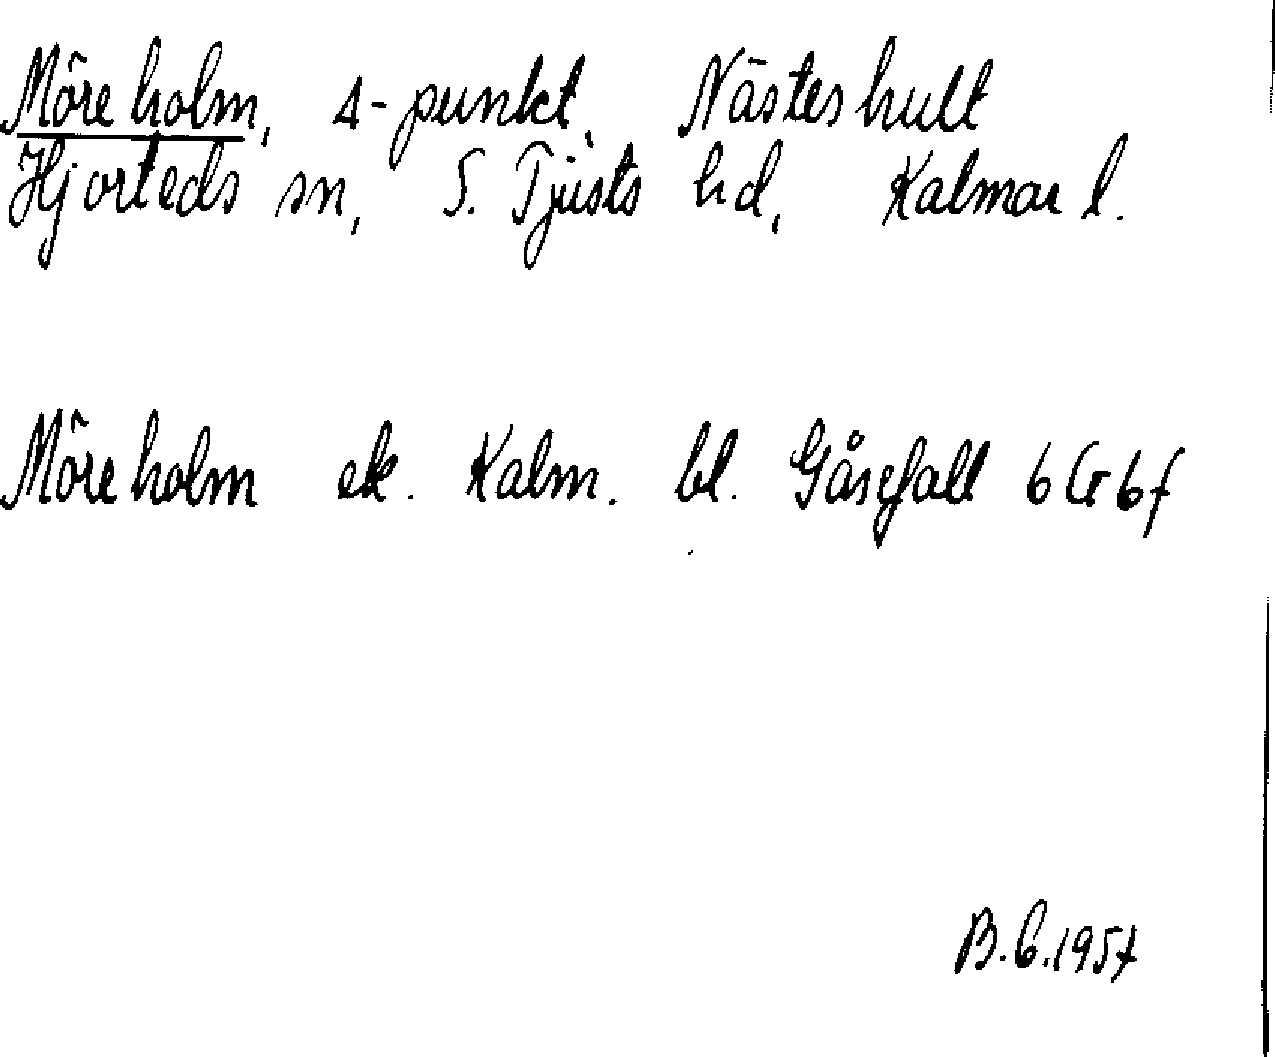 Möreholm, Δ-punkt, Nästeshult
Hjorteds sn, S. Tjusts hd, Kalmar l.
Möreholm ek. Kalm. bl. Gåsefall 6 G 6 f
B.G.1957